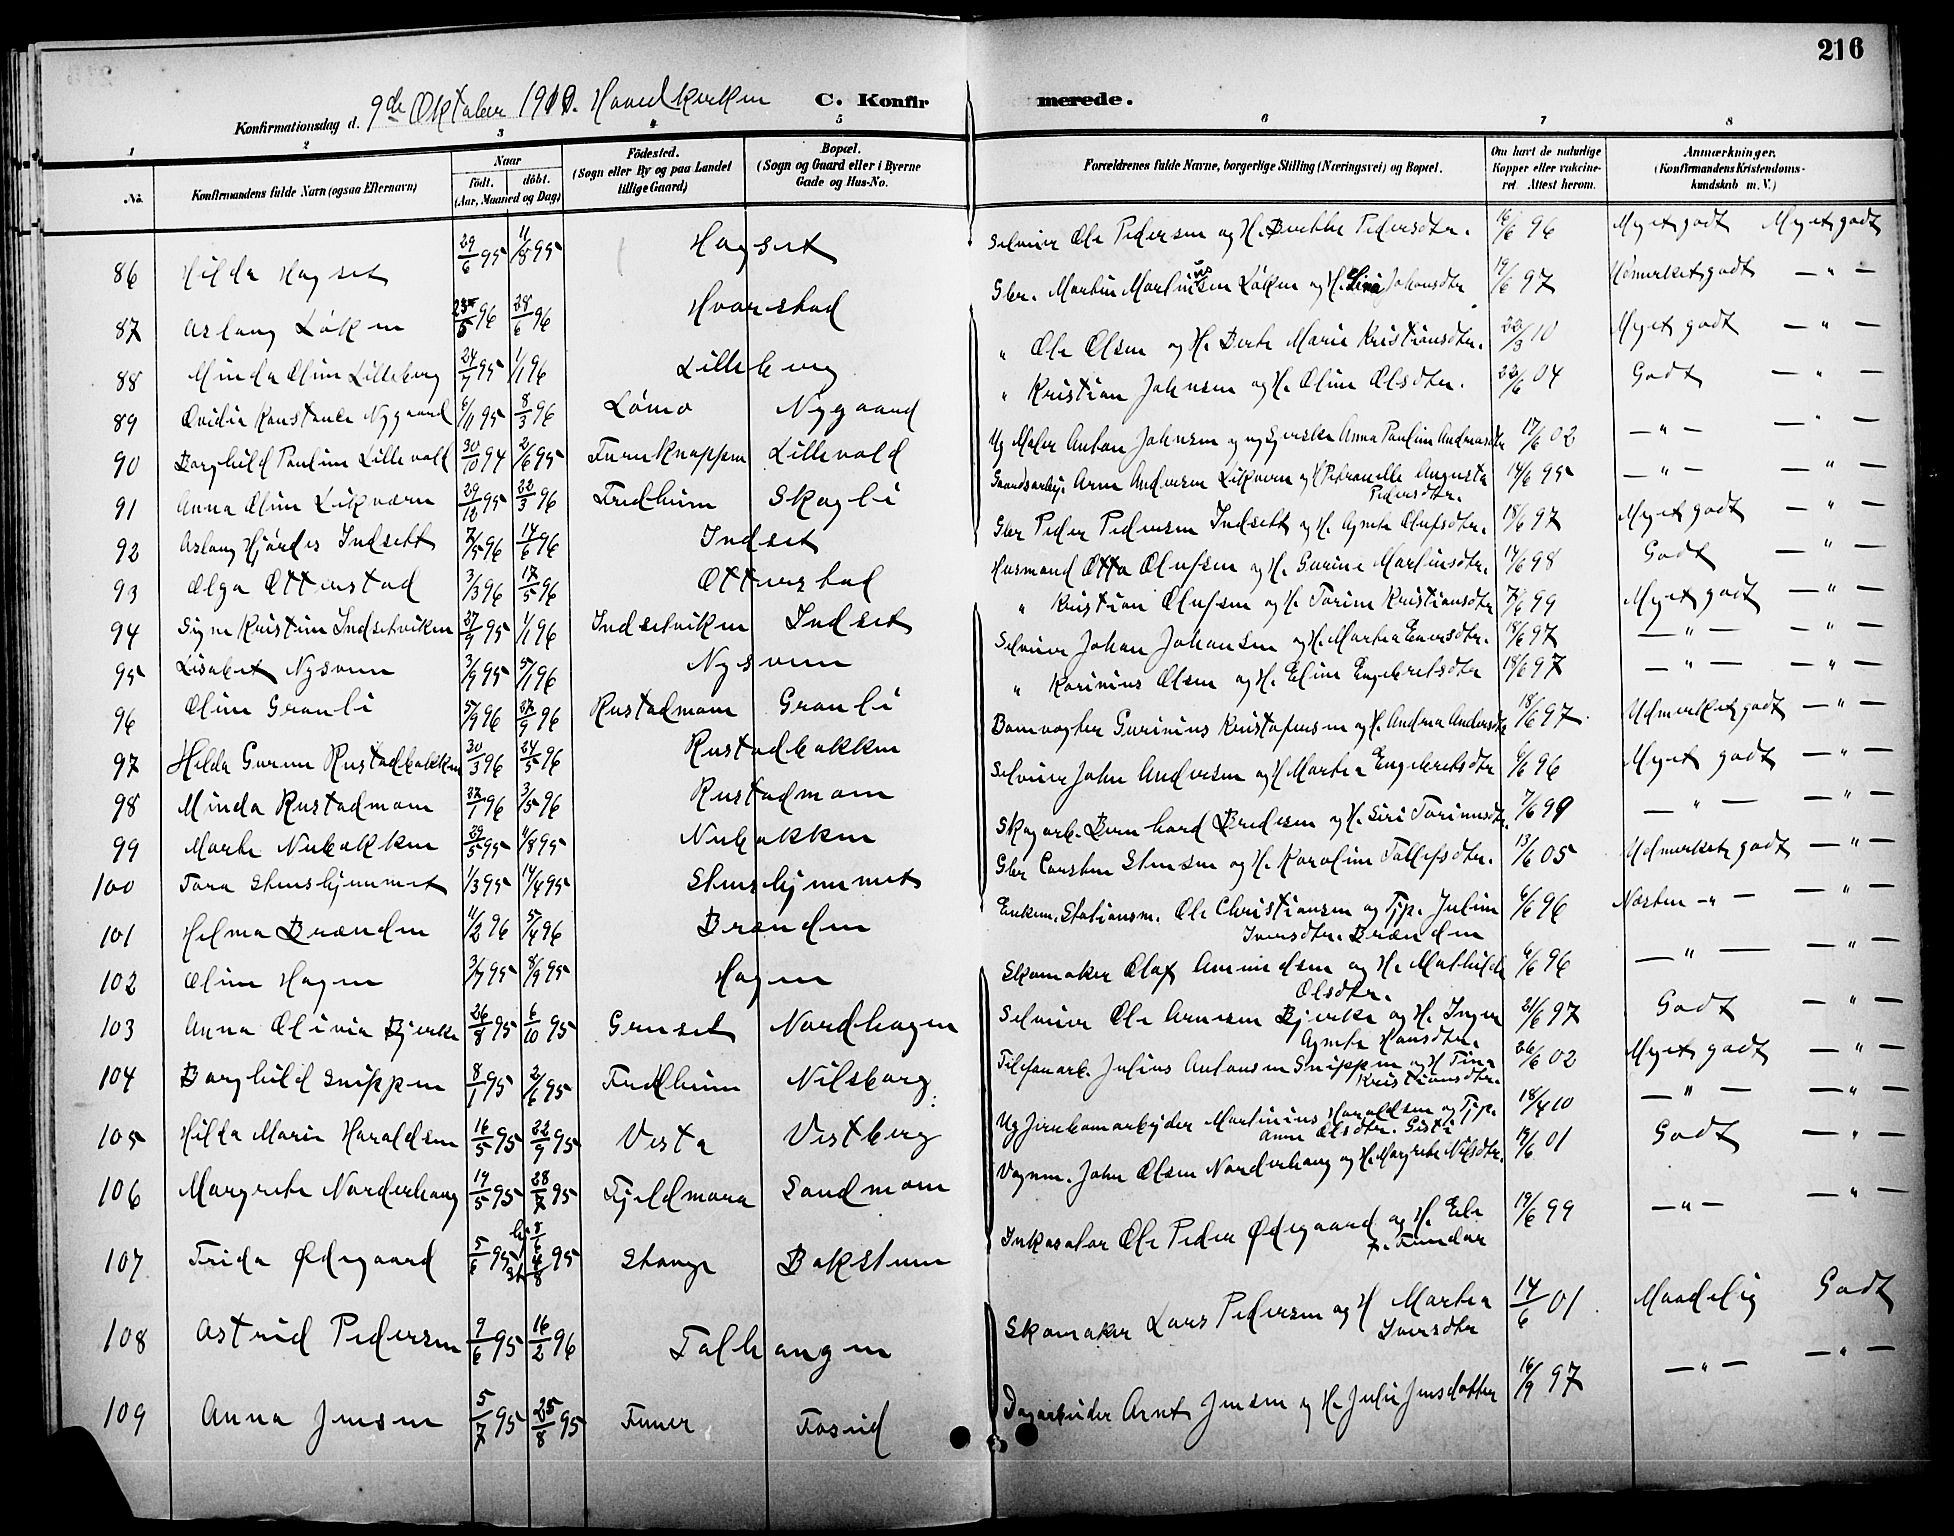 216
Konfirmationsdag d. 9de Oktober 1910. Hovedkirken C. Konfirmerede.
1 2 3 4 5 6 7 8
No. Konfirmandens fulde Navn (ogsaa Efternavn) Naar født. døbt. (Aar, Maaned og Dag) Födested. (Sogn eller By og paa Landet tillige Gaard) Bopæl. (Sogn og Gaard eller i Byerne Gade og Hus-No. Forældrenes fulde Navne, borgerlige Stilling (Næringsvei) og Bopæl. Om havt de naturlige Kopper eller vakcineret. Attest herom. Anmærkninger. (Konfirmandens Kristendomskundskab m. V.)
86 Hilda Hagset 29/6 95 11/8 95 Hagset Selveier Ole Pedersen og H. Berthe Pedersdtr. 16/6 96 Meget godt Meget godt
87 Aslaug Løken 25/5 96 28/6 96 Hvarstad Gbr. Martin Martinsen Løken og H. Lina Johansdtr 19/6 97 Udmerket godt — " —
88 Minda Oline Lilleberg 24/9 95 1/1 96 Lilleberg " Ole Olsen og H. Berte Marie Kristiansdtr. 22/3 10 Meget godt — " —
89 Ovidia Konstanse Nygaard 6/11 95 8/3 96 Lømo Nygaard " Kristian Johnsen og H. Oline Olsdtr. 22/6 04 Godt — " —
90 Borghild Pauline Lillevold 30/10 94 2/6 95 Furuknappen Lillevold Ug Maler Anton Johnsen og ug Syerske Anna Pauline Andreasdtr 17/6 02 — " — — " —
91 Anna Oline Likværn 29/12 95 22/3 96 Fredheim Skogli Gaardsarbej. Arne Andersen Likværn og H Petranelle Augusta Pedersdtr. 14/6 95 — " — — " —
92 Aslaug Hjørdis Indsett 7/5 96 14/6 96 Indset Gbr Peder Pedersen Indsett og H. Agnete Olufsdtr. 18/6 97 Meget godt — " —
93 Olga Otterstad 3/3 96 17/5 96 Otterstad Husmand Otto Olufsen og H. Gurine Martinsdtr. 17/6 98 Godt — " —
94 Signe Kristine Indsetviken 27/9 95 1/1 96 Indsetviken Indset " Kristian Olufsen og H. Torine Kristiansdtr 7/6 99 Meget godt — " —
95 Lisabet Nysveen 3/9 95 5/1 96 Nysveen Selveier Johan Johansen og H. Marthea Eversdtr. 18/6 97 — " — — " —
96 Oline Granli 5/9 96 27/9 96 Rustadmoen Granli " Karinius Olsen og H. Eline Engebretsdtr 18/6 97 — " — — " —
97 Helda Gurine Rustadbakken 30/3 96 24/5 96 Rustadbakken Banevogter Gurinius Kristofersen og H. Andrea Andersdtr 18/6 97 Udmerket godt — " —
98 Minda Rustadmoen 22/1 96 3/5 96 Rustadmoen Selveier John Andersen og H Marthea Engebretsdtr 6/6 96 Meget godt — " —
99 Marte Nubakken 29/5 95 11/8 95 Nubakken Skogarb. Bernhard Bredesen og H. Siri Torinusdtr. 7/6 99 — " — — " —
100 Tora Stenshjemmet 1/3 95 14/4 95 Stenshjemmet Gbr Carsten Stensen og H. Karoline Tollefsdtr. 13/6 05 Udmerket godt — " —
101 Helma Brænden 11/2 96 5/4 96 Brænden Enkem. Stationsm. Ole Christiansen og Tjp. Juline Iversdtr. Brænden 6/6 96 Næsten — " — — " —
102 Oline Hagen 3/7 95 8/9 95 Hagen Skomaker Olaf Amundsen og H. Mathilde Olsdtr. 6/6 96 — " — — " —
103 Anna Olivia Bjerke 26/8 95 6/10 95 Grinset Nordhagen Selveier Ole Arnesen Bjerke og H. Inger Agnete Hansdtr. 21/6 97 Godt — " —
104 Borghild Snippen 8/1 95 2/6 95 Fredheim Nilsborg Telefonarb. Julius Antonsen Snippen og H Tina Kristiansdtr. 26/6 02 Meget godt — " —
105 Hilda Marie Haraldsen 16/5 95 22/9 95 Vesta Vestberg Ug Jernbanearbejder Martinius Haraldsen og Tjp. Anne Olsdtr. 18/4 10 — " — — " —
106 Margrete Norderhaug 19/5 95 28/7 95 Fjeldmora Sandmoen Vognm. John Olsen Norderhaug og H. Margrete Nilsdtr. 19/6 01 Godt — " —
107 Frida Ødegaard 5/6 95 8/6 4/8 95 Stange Bakstuen Inkasator Ole Peder Ødegaard og H. Eli f. Fundar 19/6 99 — " — — " —
108 Astrid Pedersen 9/6 95 16/2 96 Talhaugen Skomaker Lars Pedersen og H Marthea Iversdtr 14/6 01 Maadelig Godt
109 Anna Jensen 5/7 95 25/8 95 Furer Foseid Dagarbeider Arnt Jensen og H. Julie Jensdatter 16/9 97 — " — — " —